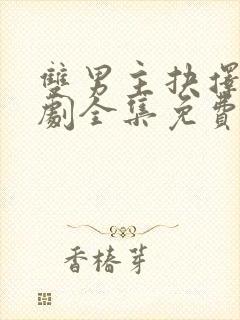 雙男主抉擇
劇全集免費
香椿芽